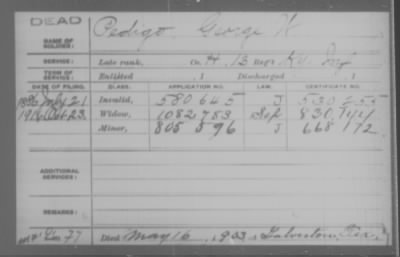 DEAD
NAME OF SOLDIER: Pedigo, George W.
SERVICE: Late rank, Co. H, 13 Reg't Ky. Inf
TERM OF SERVICE: Enlisted , 1 Discharged , 1
DATE OF FILING. CLASS. APPLICATION NO. LAW. CERTIFICATE NO.
July 21 Invalid, 580 645 J 530 255
1916 Oct 23 Widow, 1082 753 Sep 830
Minor, 805 596 J 668 172
ADDITIONAL SERVICES:
REMARKS:
Died May 16, 1903 Galveston, Tex.